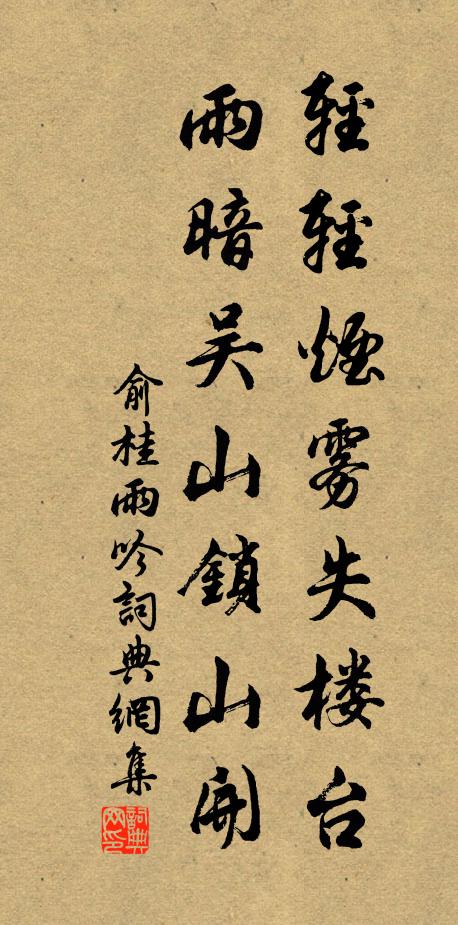 輕輕煙雾失楼台
雨暗吴山鎖山開
俞桂雨吟詞典網集
詞典網印